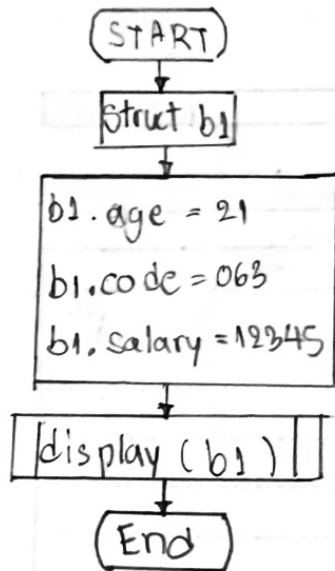 START
Struct b1
b1.age = 21
b1.code = 063
b1.salary = 12345
display (b1)
End